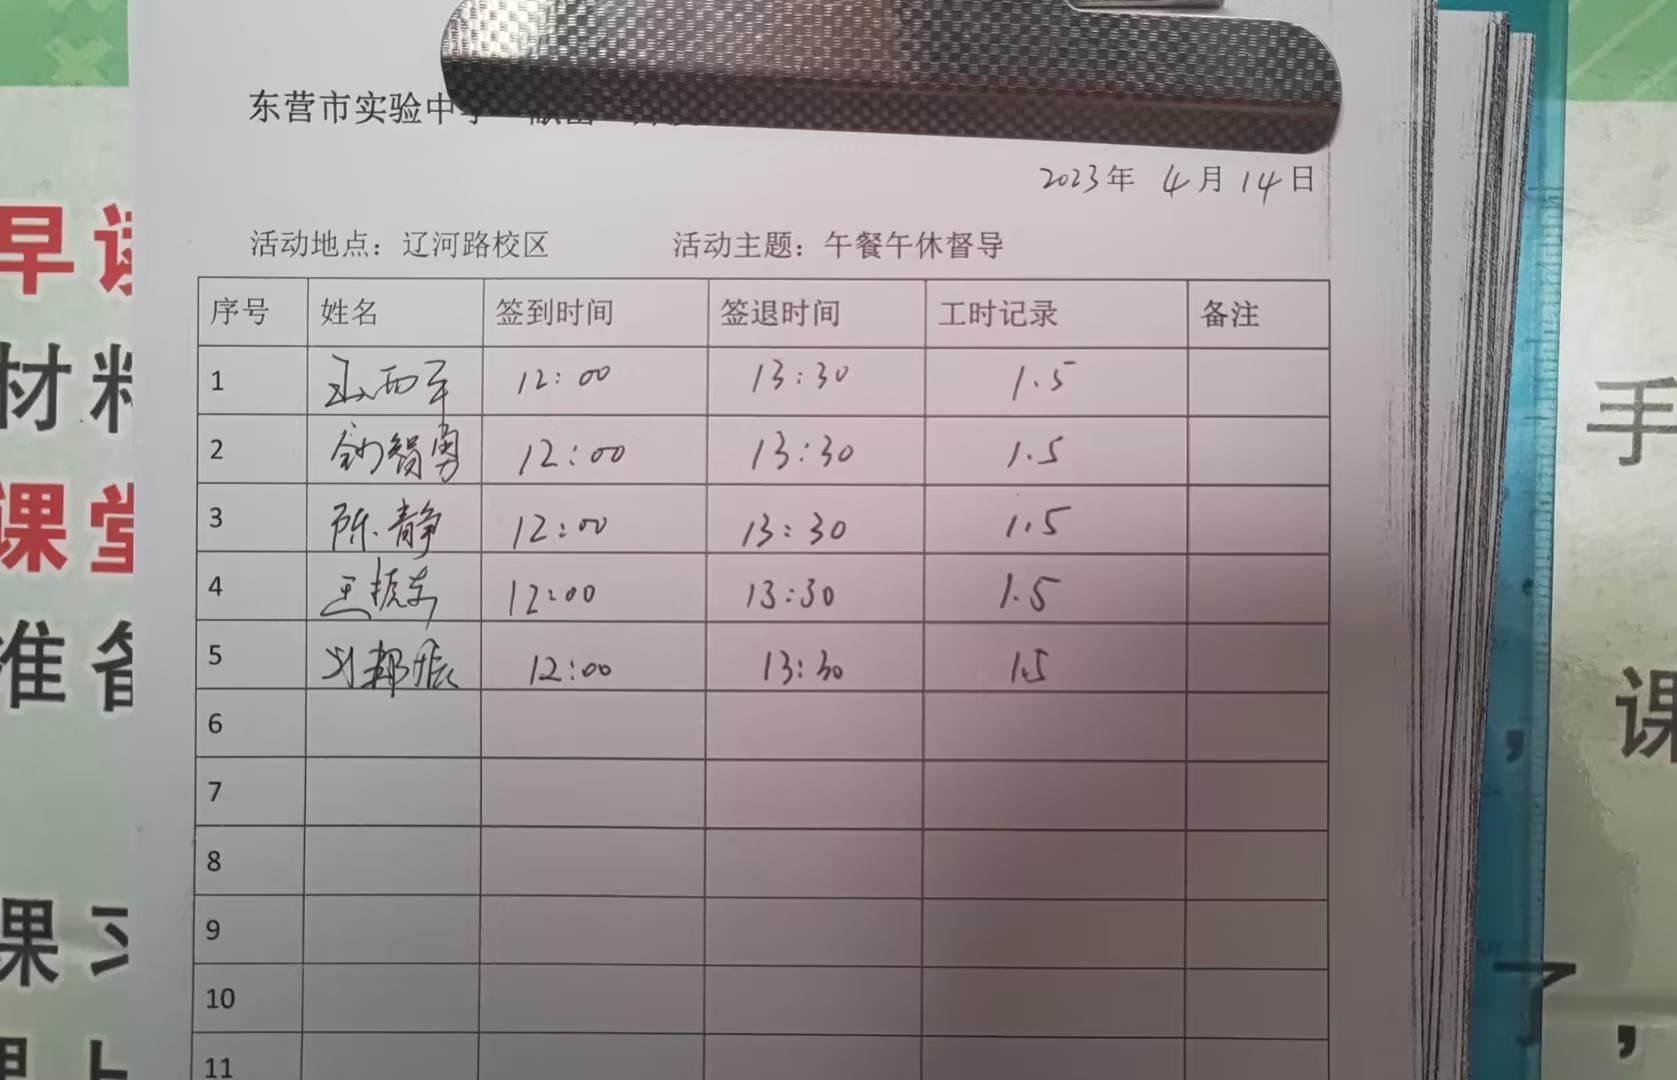 东营市实验中
2023年 4月14日
活动地点：辽河路校区 活动主题：午餐午休督导
序号 姓名 签到时间 签退时间 工时记录 备注
1 西军 12:00 13:30 1.5
2 智勇 12:00 13:30 1.5
3 陈静 12:00 13:30 1.5
4 王振东 12:00 13:30 1.5
5 刘邦振 12:00 13:30 1.5
6
7
8
9
10
11
早读
材料
课堂
准备
课 习
手
课
，
了，